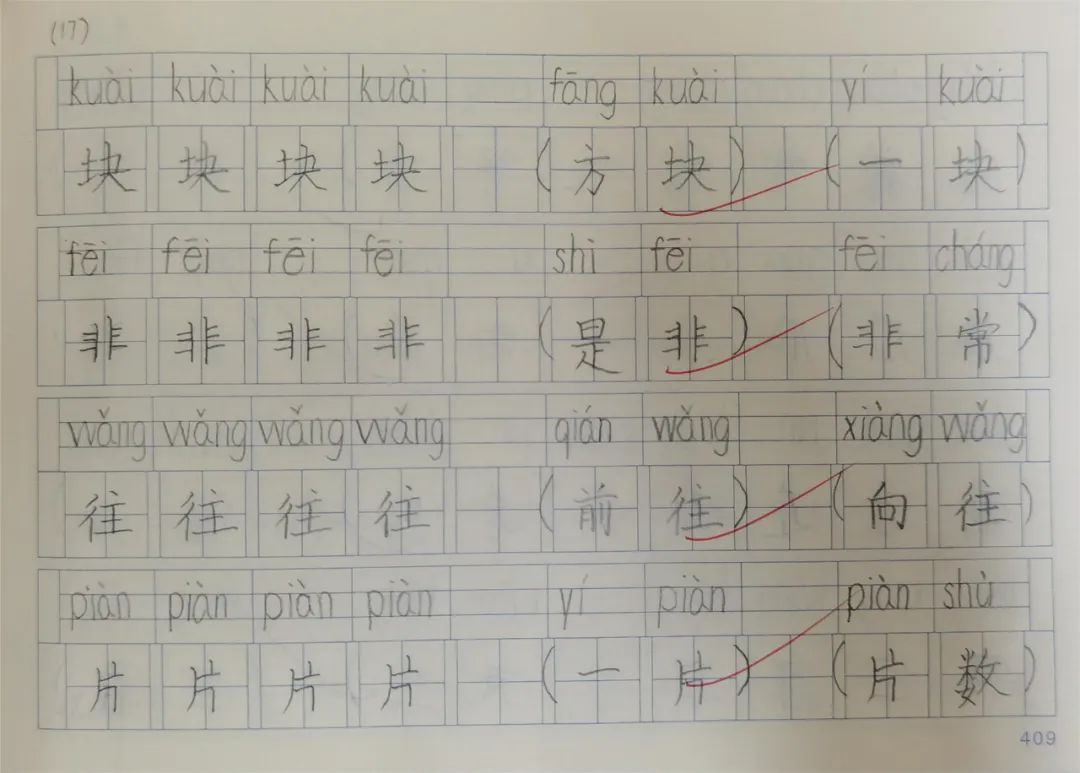 (17)
kuài kuài kuài kuài fāng kuài yí kuài
块 块 块 块 (方 块) (一 块)
fēi fēi fēi fēi shì fēi fēi cháng
非 非 非 非 (是 非) (非 常)
wǎng wǎng wǎng wǎng qián wǎng xiàng wǎng
往 往 往 往 (前 往) (向 往)
piàn piàn piàn piàn yí piàn piàn shù
片 片 片 片 (一 片) (片 数)
409